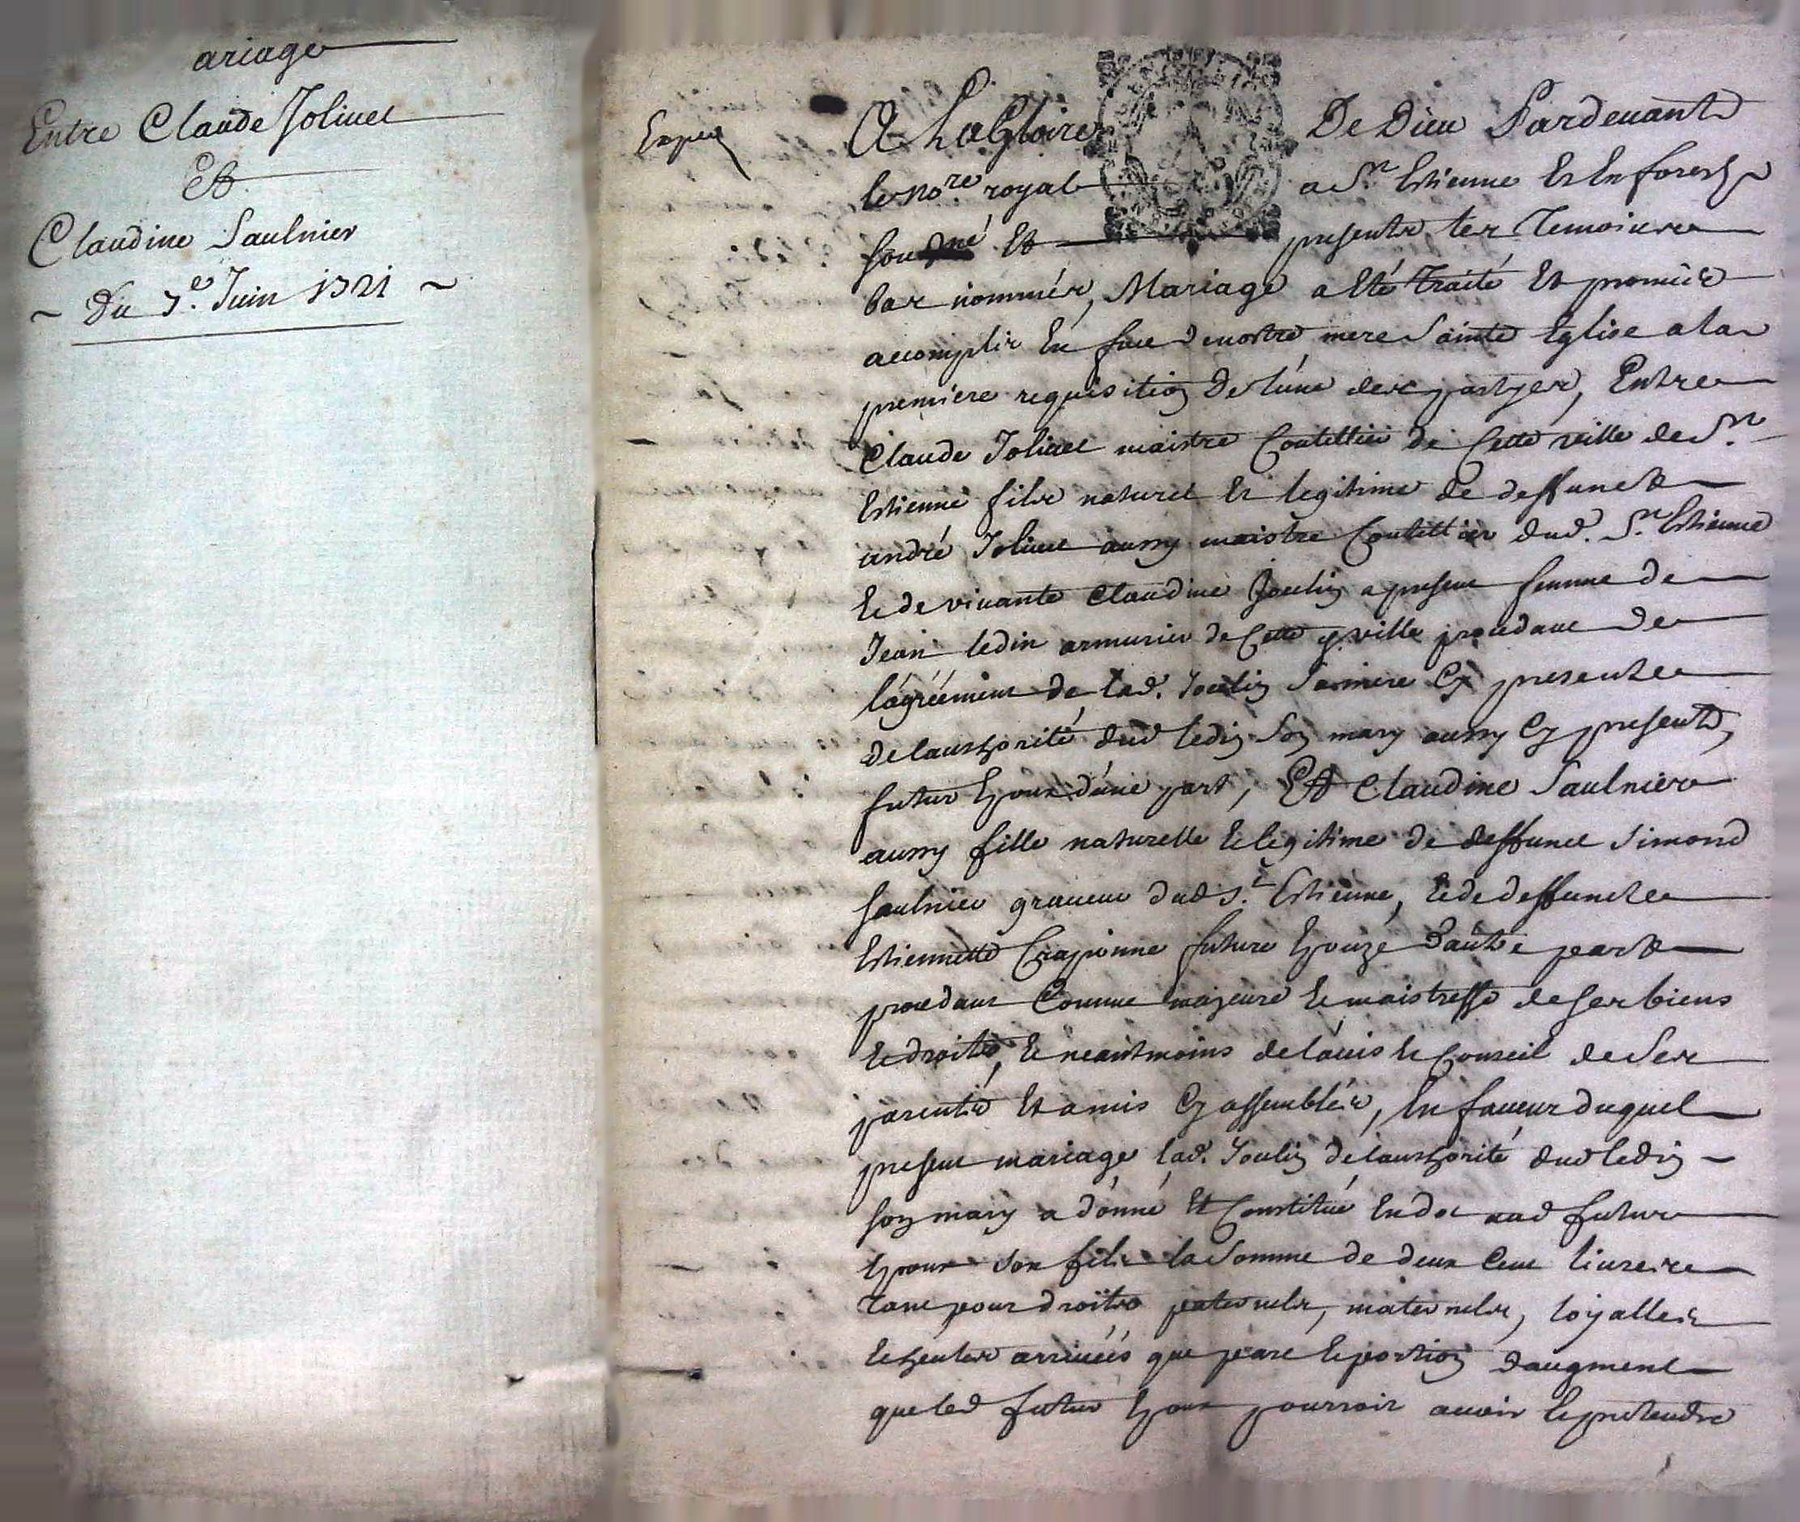 ariage
Entre Claude Joliuet
Et
Claudine Saulnier
~ Du 7e. Juin 1721 ~
Exped
A La Gloire De Dieu Pardeuant
le No.re royal a St Estienne Et En forest
sousgné Et presents les Temoins
bas nommés, Mariage a eté Traité Et promis
accomplir En face de nostre mere Sainte Eglise a la
premiere requisition De l'une des partyes, Entre
Claude Joliuet maistre Coutellier de Cette ville de St.
Estienne fils naturel Et legitime de deffunct
andré Joliuet aussy maistre Coutellier dud. St. Estienne
Et de viuante Claudine Joulin a present femme de
Jean ledin armurier de Cette ville procedant de
l'agréement de lad. Joulin Sa mere Cy presente
de lauthorité dud ledin Son mary aussy Cy present,
futur Epoux d'une part, Et Claudine Saulnier
aussy fille naturelle Et legitime de deffunct Simond
Saulnier graueur dud St. Estienne, Et de deffuncte
Estiennette Craponne future Epouze d'autre part
procedant Comme majeure Et maistresse de Ses biens
Et droits, Et neantmoins de l'auis Et Conseil de Ses
parents Et amis Cy assemblés, En faueur duquel
present mariage lad. Joulin de lauthorité dud ledin ~
Son mary a donné Et Constitué En dot aud futur
Epoux Son fils la Somme de deux Cent liures
Tant pour droits paternels, maternels, loyalles
Et heutes arriuées que part Et portion daugment
que led futur Epoux pourroit auoir Et pretendre